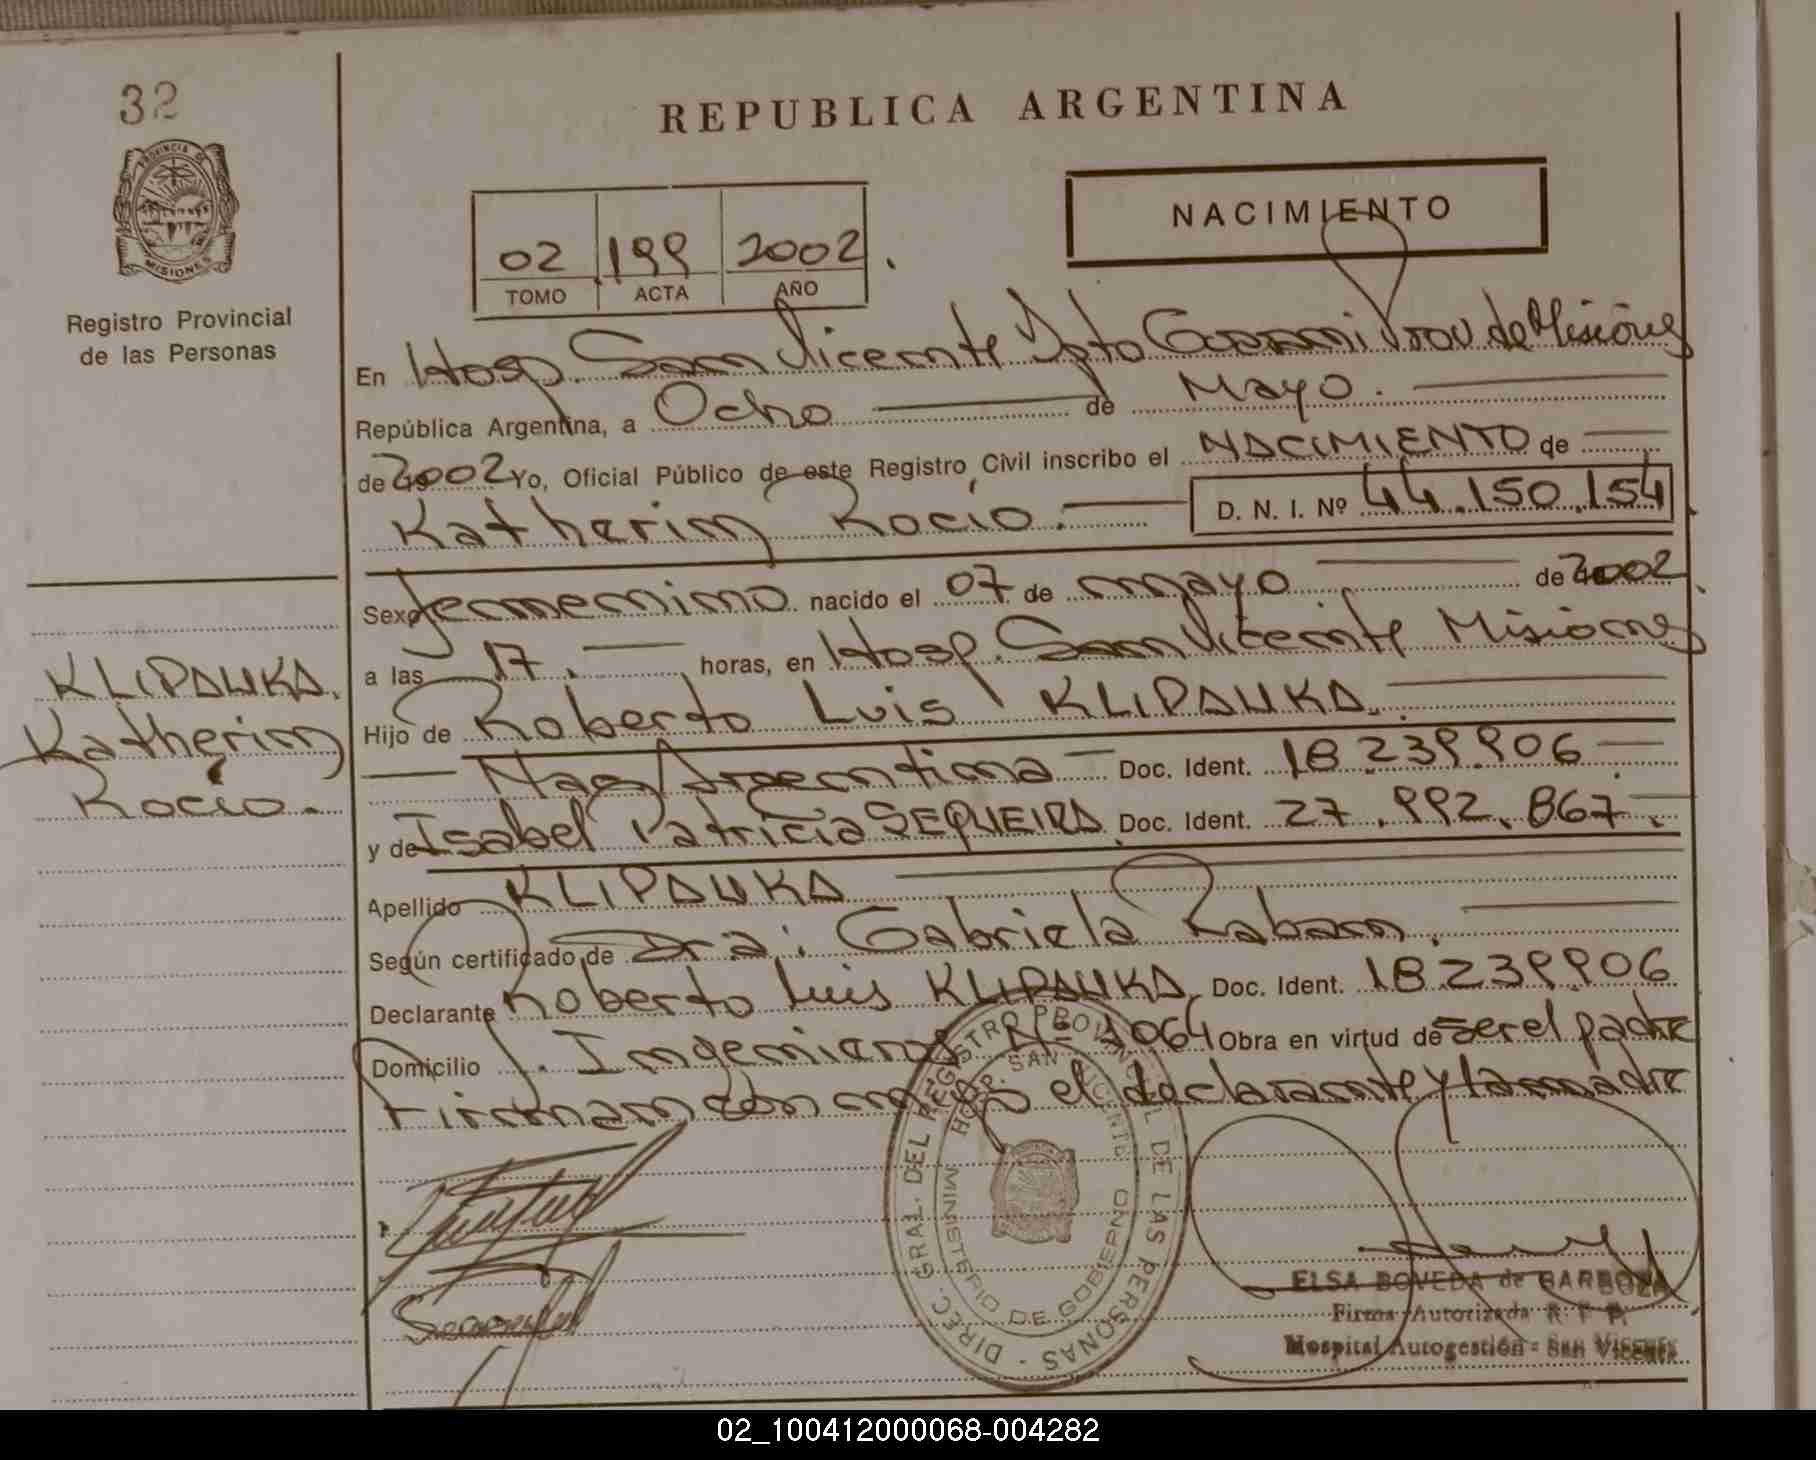 32
REPUBLICA ARGENTINA
PROVINCIA DE
MISIONES
Registro Provincial
de las Personas
NACIMIENTO
02 199 2002.
TOMO ACTA AÑO
En Hosp. San Vicente Dpto Guarani Prov de Misiones
República Argentina, a Ocho de Mayo.
de 2002 Yo, Oficial Público de este Registro Civil inscribo el NACIMIENTO de
Katherin Rocio. D. N. I. Nº 44.150.154
Sexo femenino nacido el 07 de mayo de 2002
a las 17. horas, en Hosp. San Vicente Misiones
Hijo de Roberto Luis KLIPAUKA.
Nac Argentina Doc. Ident. 18.239.906
y de Isabel Patricia SEQUEIRA Doc. Ident. 27.992.867.
Apellido KLIPAUKA
Según certificado de Dra: Gabriela Raban.
Declarante Roberto Luis KLIPAUKA Doc. Ident. 18.239.906
Domicilio J. Ingenieros Nº 1064 Obra en virtud de ser el padre
Firman con migo el declarante y la madre
KLIPAUKA.
Katherin
Rocio.
DIREC. GRAL. DEL REGISTRO PROVINCIAL DE LAS PERSONAS
HOSP. SAN VICENTE
MINISTERIO DE GOBIERNO
ELSA BOVEDA de BARBOZA
Firma Autorizada R. P. P.
Hospital Autogestión - San Vicente
02_100412000068-004282